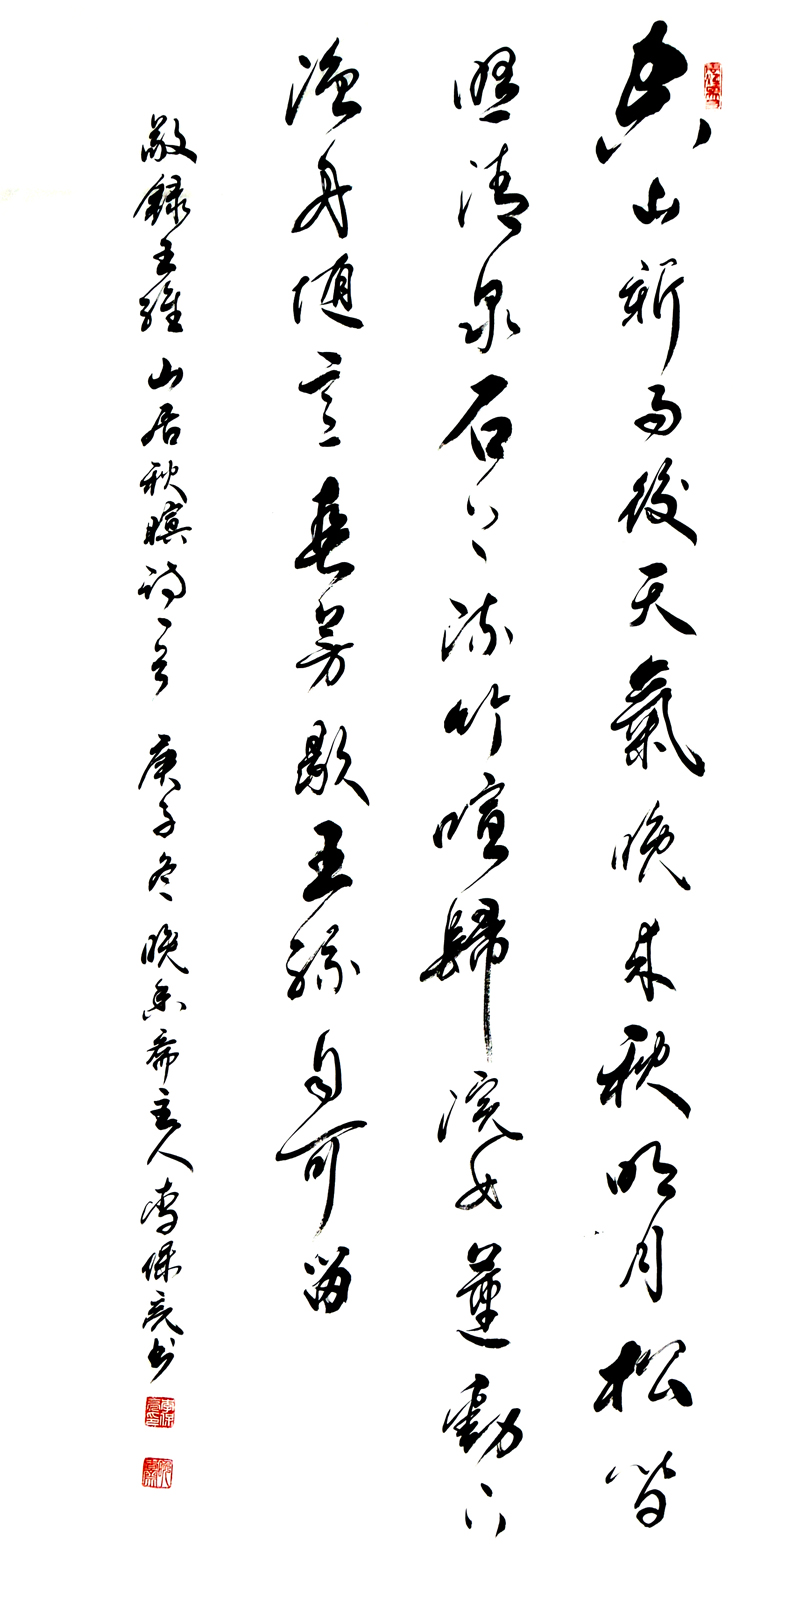 空山新雨後天氣晚来秋明月松間
照清泉石上流竹喧歸浣女蓮動下
漁舟随意春芳歇王孫自可留
敬録王維山居秋暝詩一首 庚子冬晚香斋主人保亮书